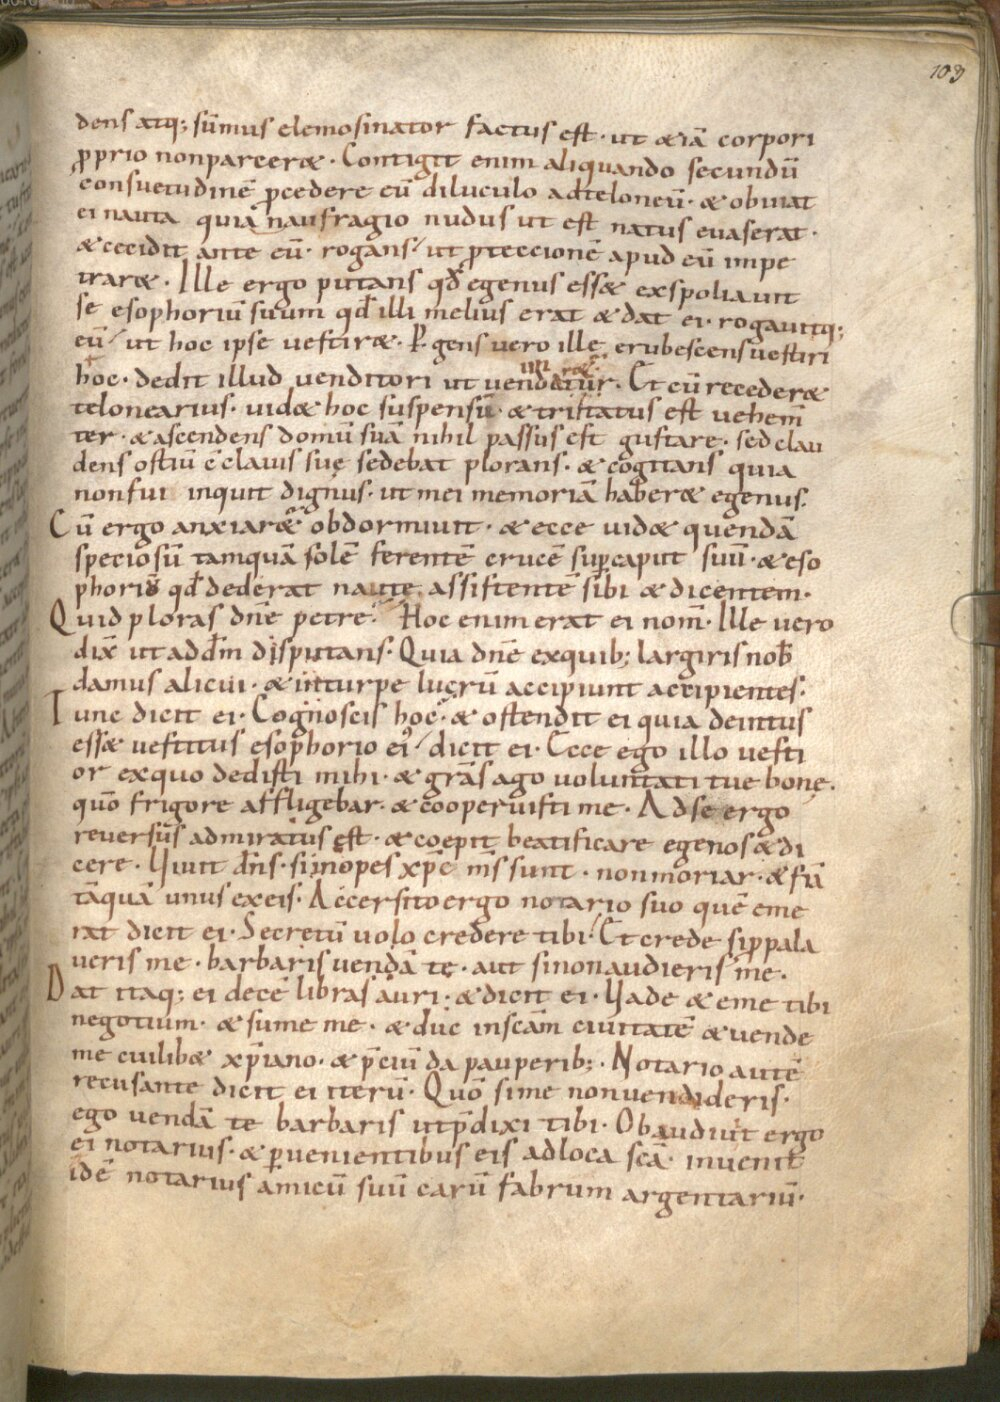 103
dens atq; sūmus elemosinator factus est · ut & iā corpori
p̱prio non parcer& · Contigit enim aliquando secundū
consuetudinē p̱cedere eū diluculo ad teloneū · & obuiat
ei nauta quia naufragio nudus ut est natus euaserat ·
& cecidit ante eū · rogans ut p̱teccionē apud eū impe
trar& · Ille ergo putans qđ egenus ess& exspoliauit
se esophoriū suum qđ illi melius erat & dat ei · rogauitq;
eū ut hoc ipse uestir& · Pergens uero ille erubescens uestiri
hoc · dedit illud uenditori ut uendatur · Et cū receder&
telonearius · uid& hoc suspensū · & tristatus est uehem̄
ter · & ascendens domū suā nihil passus est gustare · sed clau
dens ostiū c̄ clauis suę sedebat plorans · & cogitans quia
non fui inquit dignus · ut mei memoriā haber& egenus ·
Cū ergo anxiar& obdormiuit · & ecce uid& quendā
speciosū tamquā solē ferentē crucē sup̱ caput suū · & eso
phoriū qđ dederat nautę assistentē sibi & dicentem ·
Quid ploras dn̄e petre · Hoc enim erat ei nom̄ · Ille uero
dix̄ ut ad dm̄ disputans · Quia dn̄e ex quib; largiris nob
damus alicui · & in turpe lucrū accipiunt accipientes ·
Tunc dicit ei · Cognoscis hoc · & ostendit ei quia deintus
ess& uestitus esophorio ei dicit ei · Ecce ego illo uesti
or ex quo dedisti mihi · & grās ago uoluntati tue bonę ·
quō frigore affligebar · & cooperuisti me · Ad se ergo
reuersus admiratus est · & coepit beatificare egenos & di
cere · Uiuit dn̄s · si inopes xp̄c m̄s sunt · non moriar · & fiā
tāquā unus ex eis · Accersito ergo notario suo quē eme
rat dicit ei · Secretū uolo credere tibi · Et crede si p̱pala
ueris me · barbaris uendā te · aut si non audieris me ·
Dat itaq; ei decē libras auri · & dicit ei · Uade & eme tibi
negotium · & sume me · & duc in scām ciuitatē & uende
me cuilib& xp̄iano · & p̄ciū da pauperib; · Notario autē
recusante dicit ei iterū · Quō si me non uendideris ·
ego uendā te barbaris ut p̄dixi tibi · Obaudiuit ergo
ei notarius · & p̱uenientibus eis ad loca scā · inuenit
idē notarius amicū suū carū fabrum argentariū ·